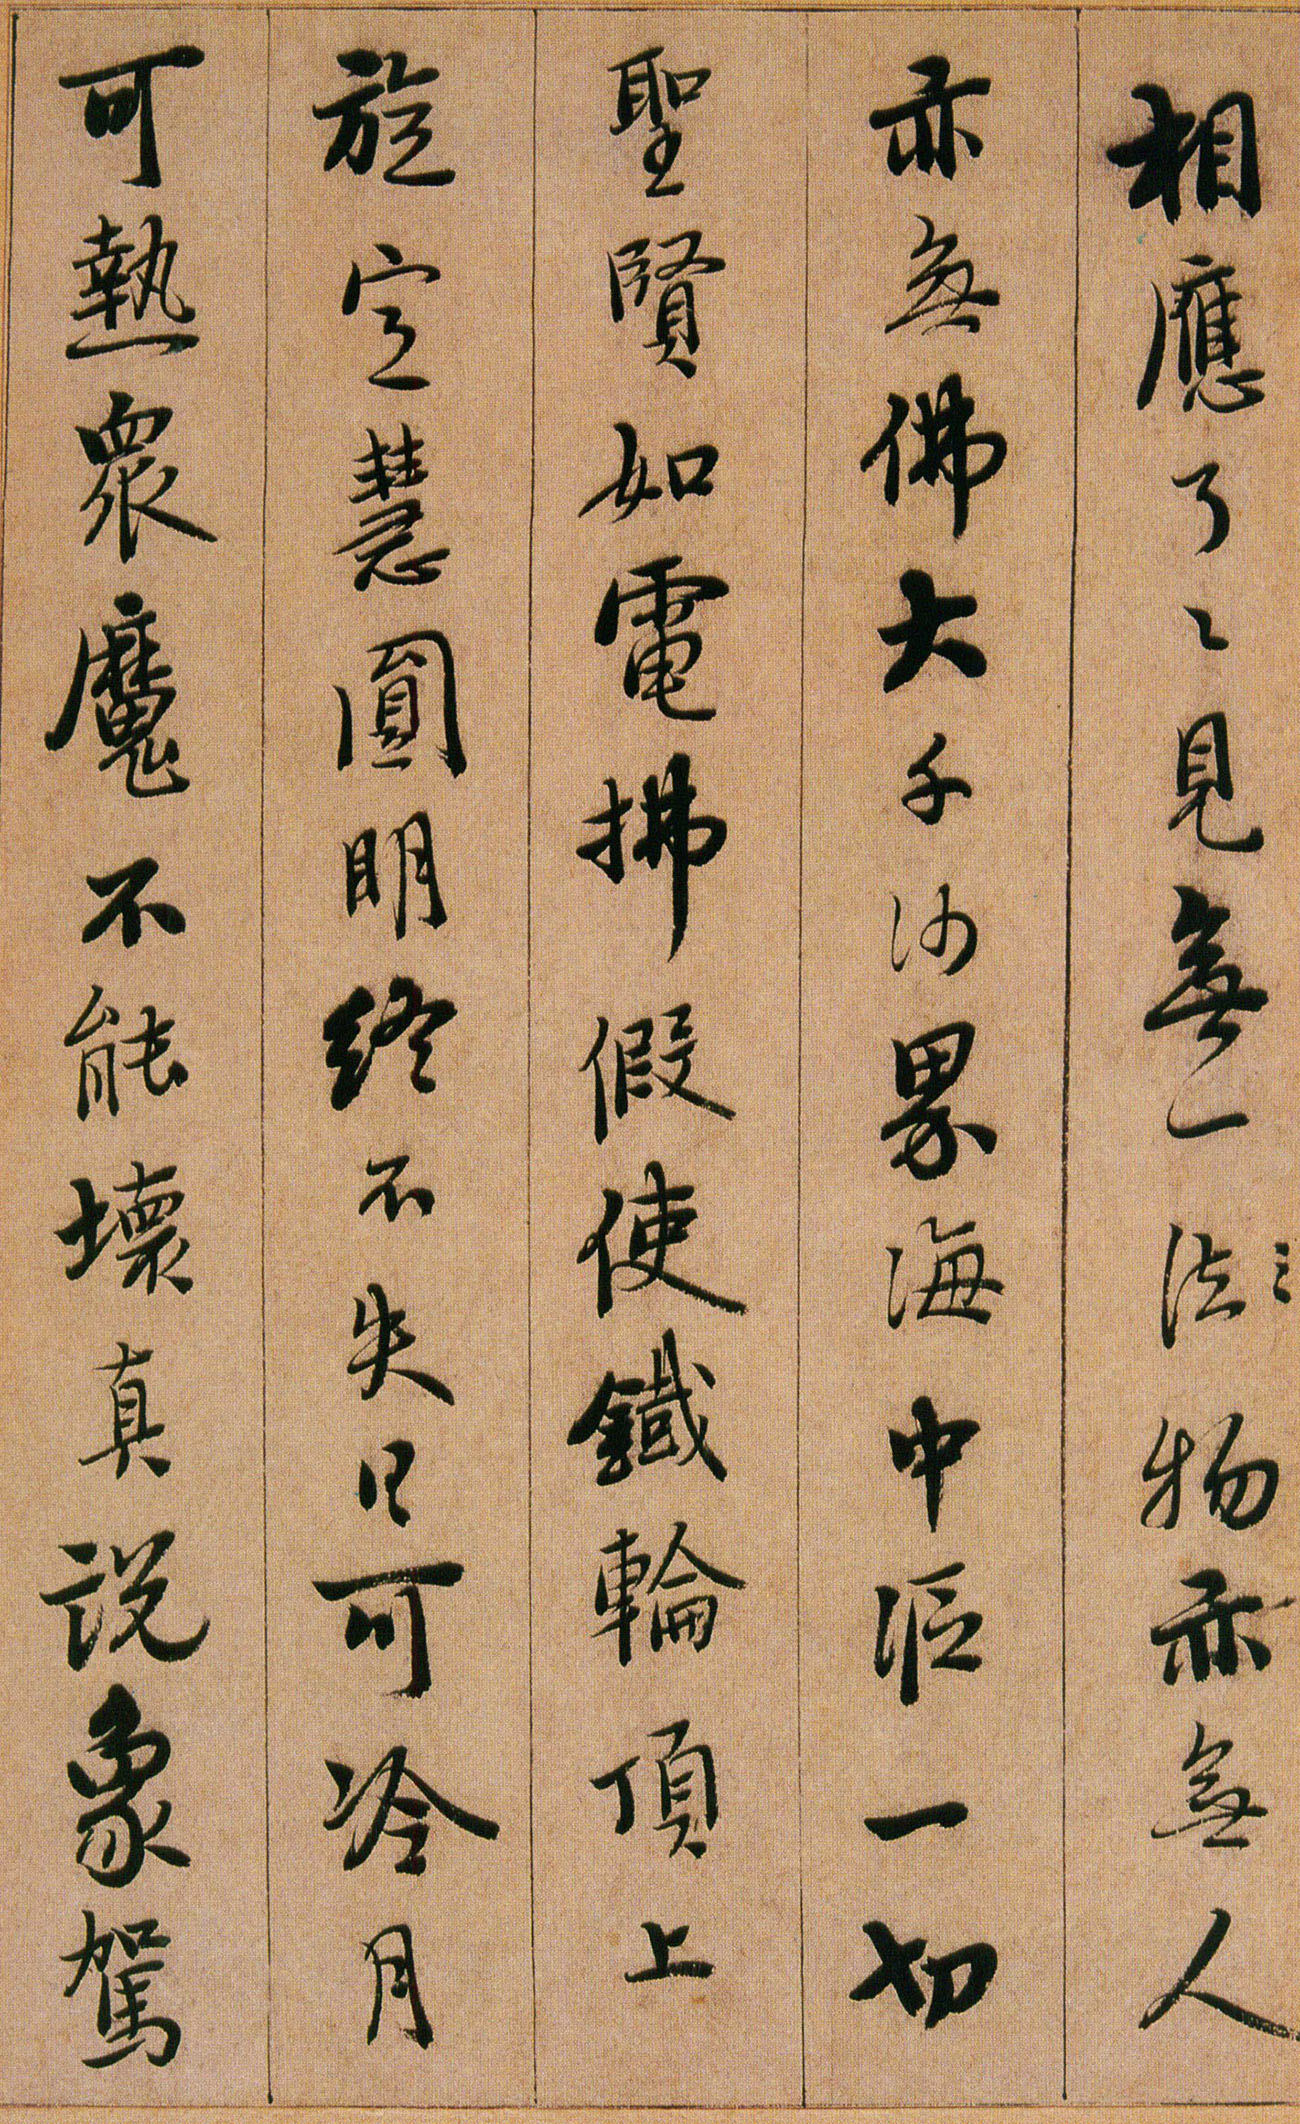 相應了〻見無一法物亦無人
亦無佛大千沙界海中漚一切
聖賢如電拂假使鐵輪頂上
旋定慧圓明終不失日可冷月
可熱眾魔不能壞真說象駕